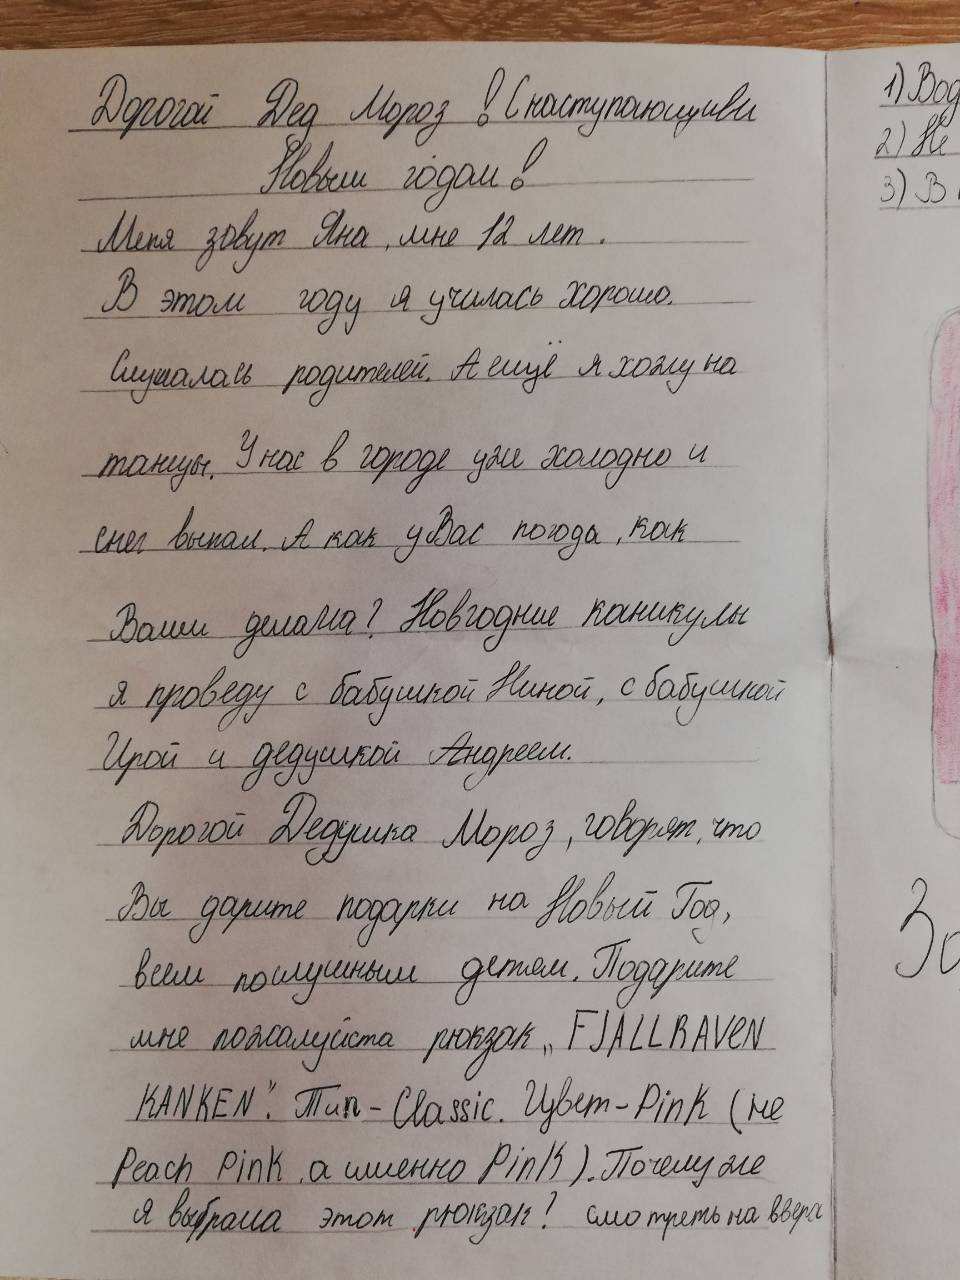 Дорогой Дед Мороз! С наступающим
Новым годом!
Меня зовут Яна, мне 12 лет.
В этом году я училась хорошо.
Слушалась родителей. А ещё я хожу на
танцы. У нас в городе уже холодно и
снег выпал. А как у Вас погода, как
Ваши дела? Новгодние каникулы
я проведу с бабушкой Ниной, с бабушкой
Ирой и дедушкой Андреем.
Дорогой Дедушка Мороз, говорят, что
Вы дарите подарки на Новый Год,
всем послушным детям. Подарите
мне пожалуйста рюкзак „FJALLRAVEN
KANKEN". Тип-Classic. Цвет-Pink (не
Peach Pink, а именно Pink). Почему же
я выбрала этот рюкзак? смотреть на вверх
1) Вод
2) Не
3) В